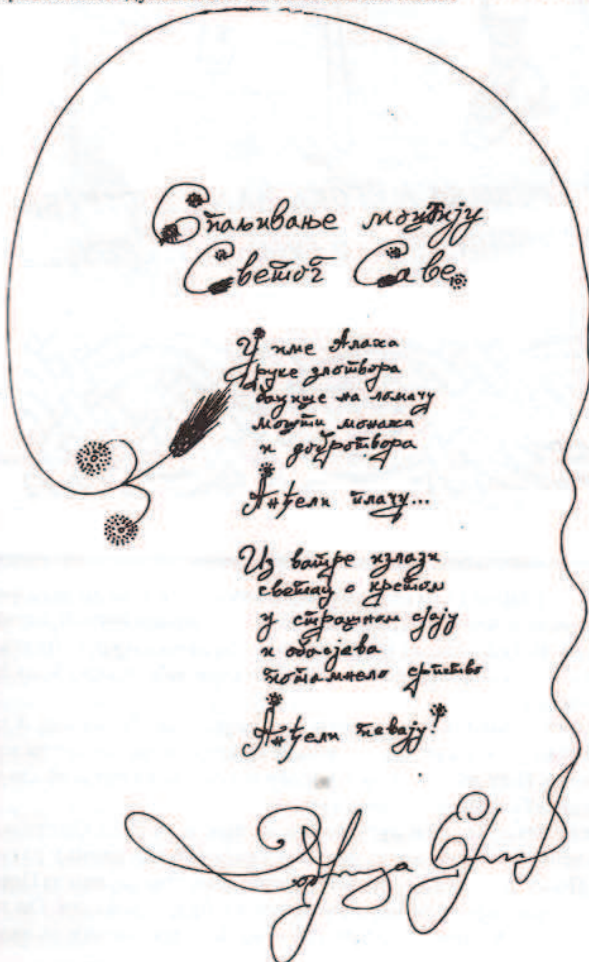 Спаљивање моштију
Светог Саве
У име Алаха
руке злотвора
бацише на ломачу
мошти монаха
и добротвора
Анђели плачу...
Из ватре излази
светац с крстом
у страшном сјају
и обасјава
потамнело српство
Анђели певају!
Добрица Ерић